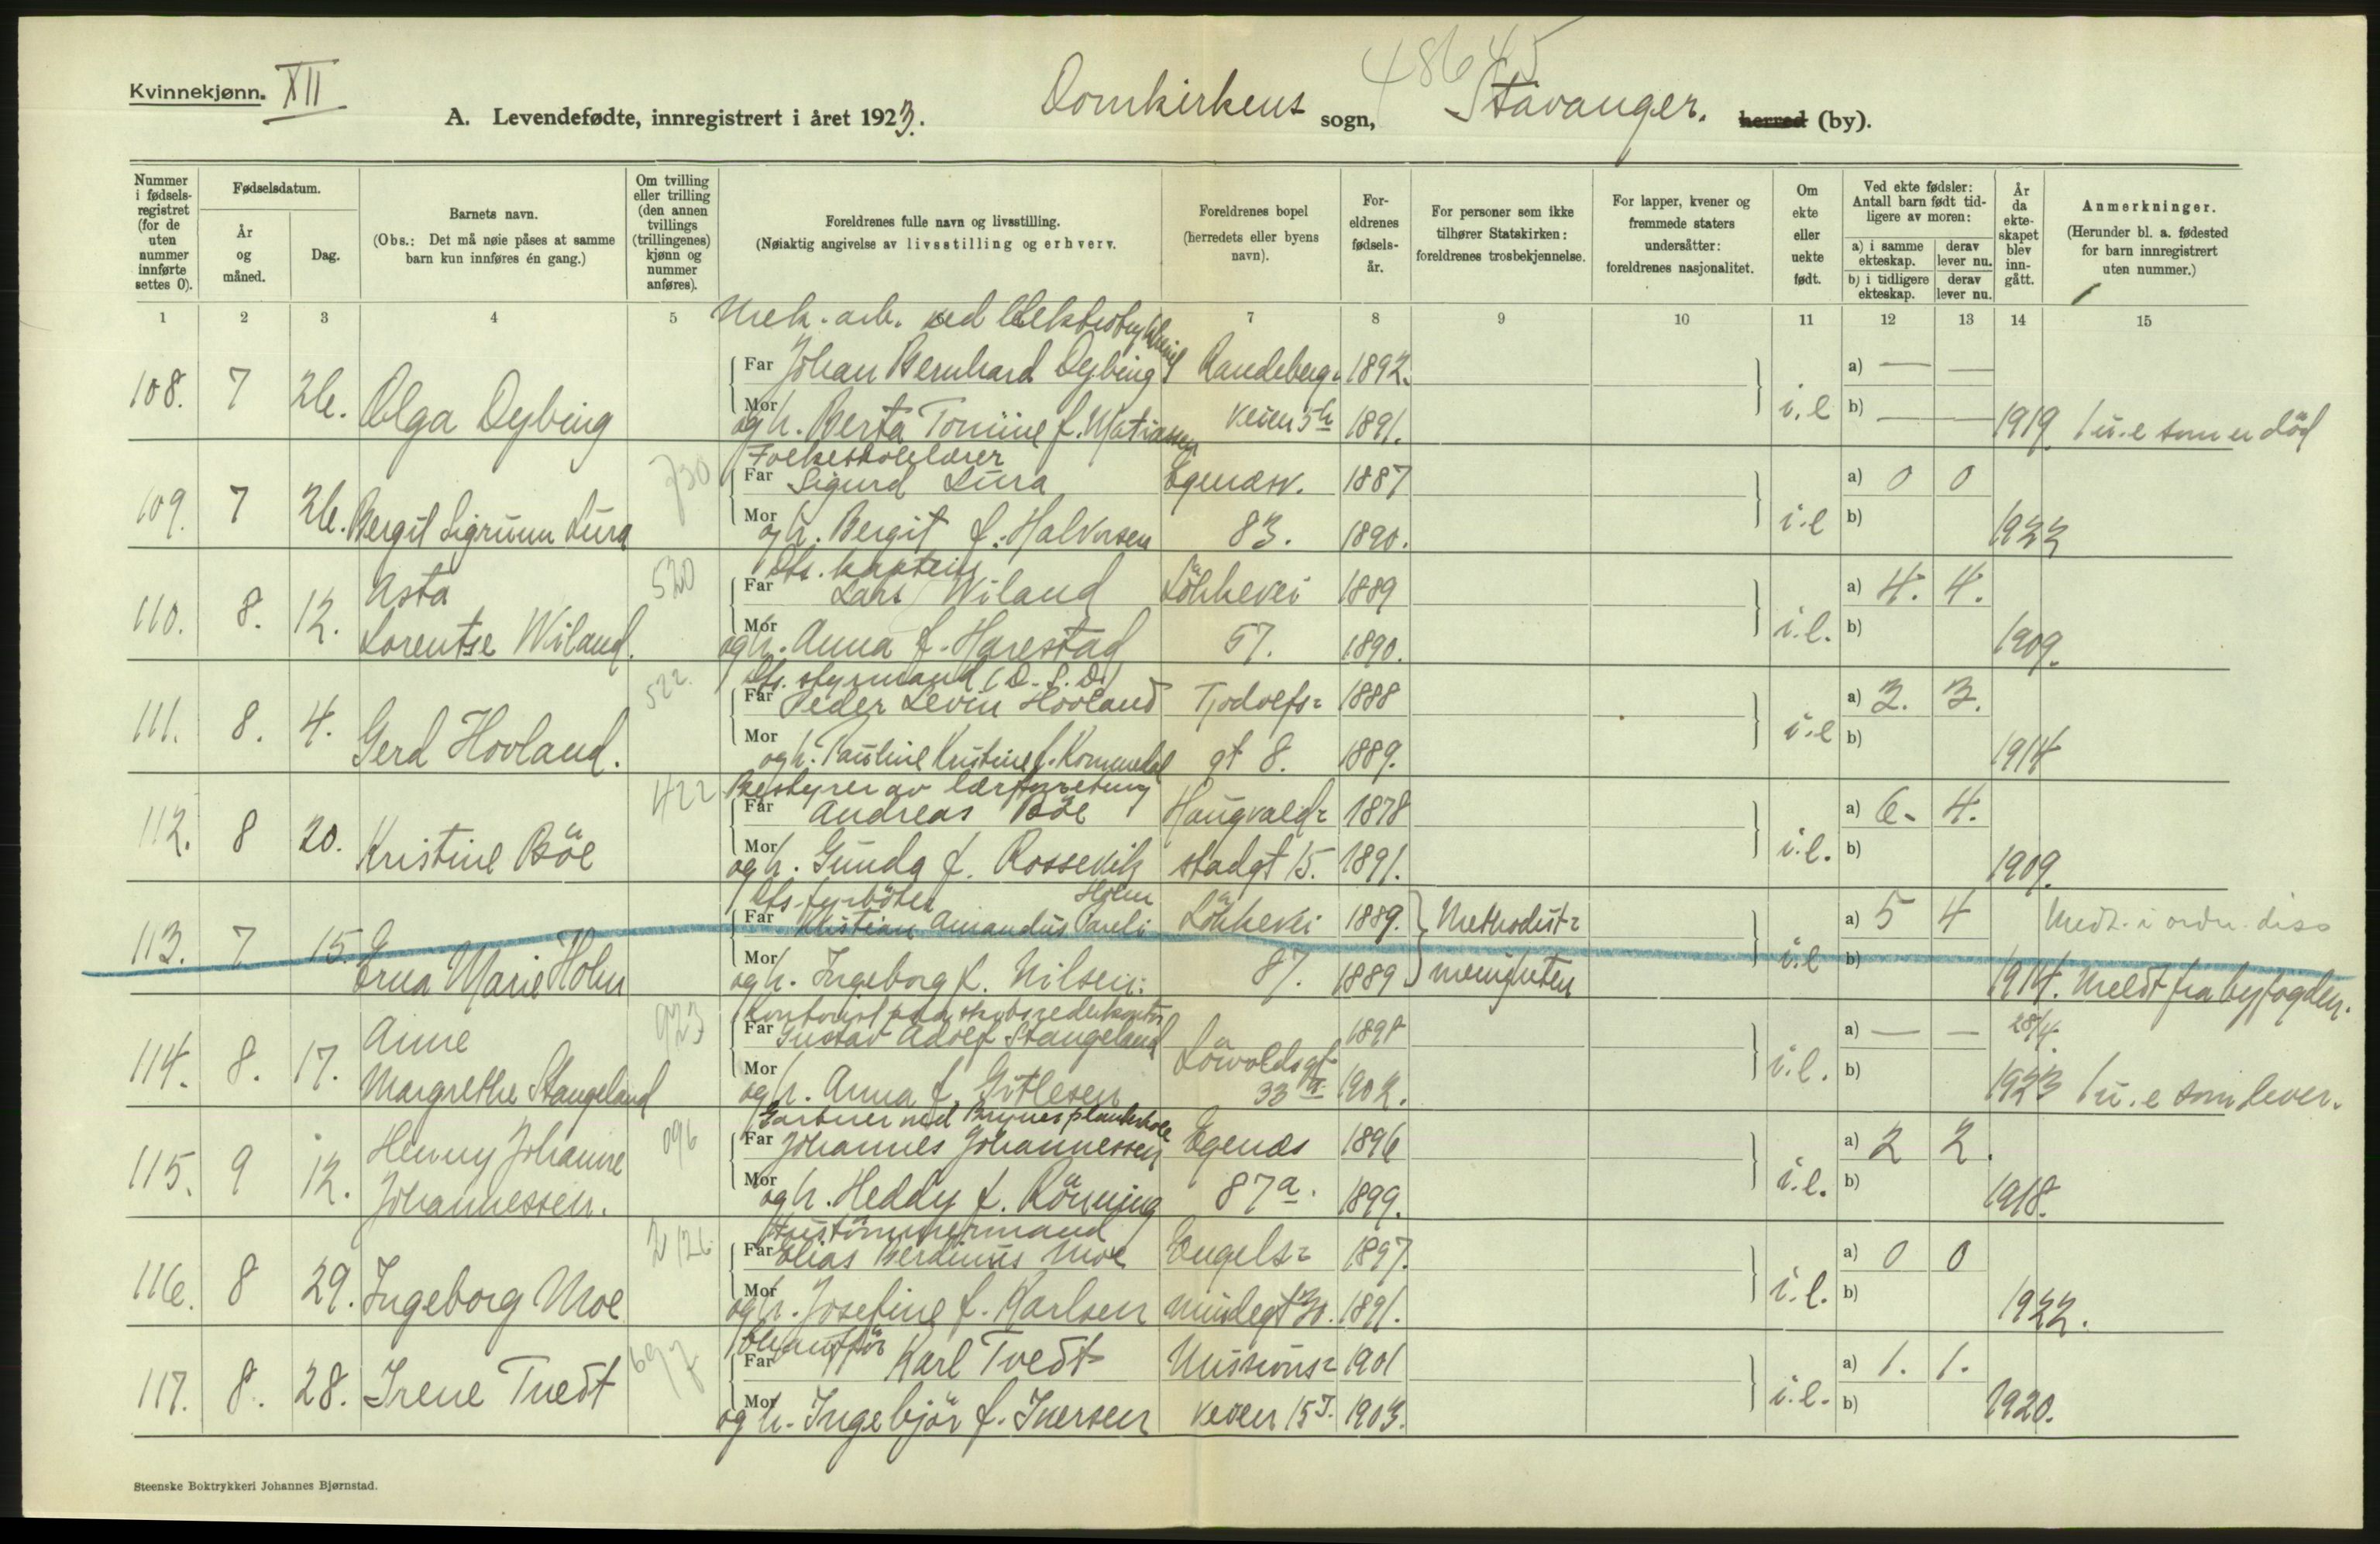 48645
Kvinnekjønn. XII
A. Levendefødte, innregistrert i året 1923. Domkirkens sogn, Stavanger. herred (by).
Nummer i fødselsregistret (for de uten nummer innførte settes 0).
Fødselsdatum.
År og måned.
Dag.
Barnets navn.
(Obs.: Det må nøie påses at samme barn kun innføres én gang.)
Om tvilling eller trilling (den annen tvillings (trillingenes) kjønn og nummer anføres).
Foreldrenes fulle navn og livsstilling.
(Nøiaktig angivelse av livsstilling og erhverv.
Foreldrenes bopel (herredets eller byens navn).
Foreldrenes fødselsår.
For personer som ikke tilhører Statskirken: foreldrenes trosbekjennelse.
For lapper, kvener og fremmede staters undersåtter: foreldrenes nasjonalitet.
Om ekte eller uekte født.
Ved ekte fødsler: Antall barn født tidligere av moren:
a) i samme ekteskap. derav lever nu.
b) i tidligere ekteskap. derav lever nu.
År da ekteskapet blev inngått.
Anmerkninger.
(Herunder bl. a. fødested for barn innregistrert uten nummer.)
1 2 3 4 5 6 7 8 9 10 11 12 13 14 15
Mek. arb. ved
108. 7 26. Olga Dybing Far Johan Bernhard Dybing Randeberg- 1892. i.e a) — — b) — —
Mor og h. Berta Tomine f. Matiassen veien 5b 1891. 1919. 1 u.e som er död
730 Folkeskolelærer
109. 7 26. Bergit Sigrunn Lura Far Sigurd Lura Egenæsv. 1887 i.e a) 0 0 b)
Mor og h. Bergit f. Halvorsen 83. 1890. 1922
520 Dfs. kaptein
110. 8. 12. Asta Lorentse Wiland. Far Lars Wiland Lökkevei 1889 i.e. a) 4. 4. b)
Mor og h. Anna f. Harestad 57. 1890. 1909.
522. Dfs. styrmand (D. S. D.)
111. 8. 4. Gerd Hovland. Far Peder Levin Hovland Tjodolfs- 1888 i.e a) 3. 3. b)
Mor og h. Pauline Kristine f. Kommedal gt 8. 1889. 1914
422 Bestyrer av
112. 8 20. Kristine Böe Far Andreas Böe Haugvald- 1878 i.e. a) 6- 4. b)
Mor og h. Gunda f. Rossevik stadgt 15. 1891. 1909.
Dfs. fyrböter Holm
113. 7 15. Erna Marie Holm Far Kristian Amandus Pareli Lökkevei 1889. Methodist- i.e a) 5 4 b) Medt. i ordn. diss
Mor og h. Ingeborg f. Nilsen. 87. 1889 menigheten 1914. Meldt fra byfogden.
923 Kontorist paa skibsrederkontor
114. 8. 17. Anne Margrethe Stangeland Far Gustav Adolf Stangeland Lövoldsgt 1898 i.e. a) — — b) 28/4
Mor og h. Anna f. Gitlesen 33 a. 1902. 1923 1 u.e som lever.
096 Gartner ved Brynes planteskole
115. 9 12. Henny Johanne Johannessen. Far Johannes Johannessen Egenæs 1896 i.e. a) 2 2. b)
Mor og h. Heddy f. Rönning 87a. 1899. 1918.
2 126. Hustömmermand
116. 8 29. Ingeborg Moe Far Elias Berdinus Moe Engels- 1897. i.e. a) 0 0 b)
Mor og h. Josefine f. Karlsen mindegt 30. 1891. 1922.
697
117. 8. 28. Irene Tvedt Far Karl Tvedt Missions- 1901 i.e. a) 1. 1. b)
Mor og h. Ingebjör f. Iversen veien 15 I. 1903. 1920.
Steenske Boktrykkeri Johannes Bjørnstad.